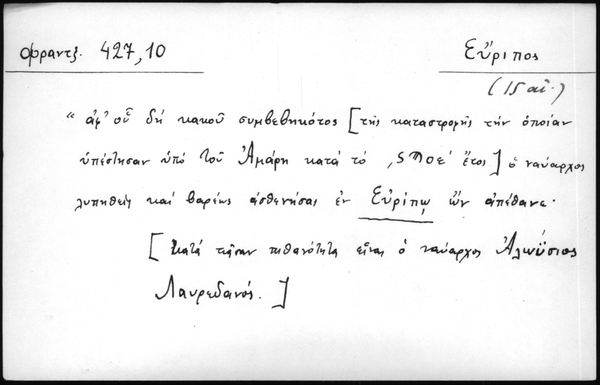 Φραντζ. 427,10
Εὔριπος
(15 αἰ.)
"ἀφ' οὗ δὴ κακοῦ συμβεβηκότος [τῆς καταστροφῆς τὴν ὁποίαν
ὑπέστησαν ὑπὸ τοῦ Ἀμάρη κατὰ τὸ ,ϛ ἔτος] ὁ ναύαρχος
λυπηθεὶς καὶ βαρέως ἀσθενήσας ἐν Εὐρίπῳ ὢν ἀπέθανε.
[κατὰ πᾶσαν πιθανότητα εἶναι ὁ ναύαρχος Ἀλωΰσιος
Λαυρεδανός.]